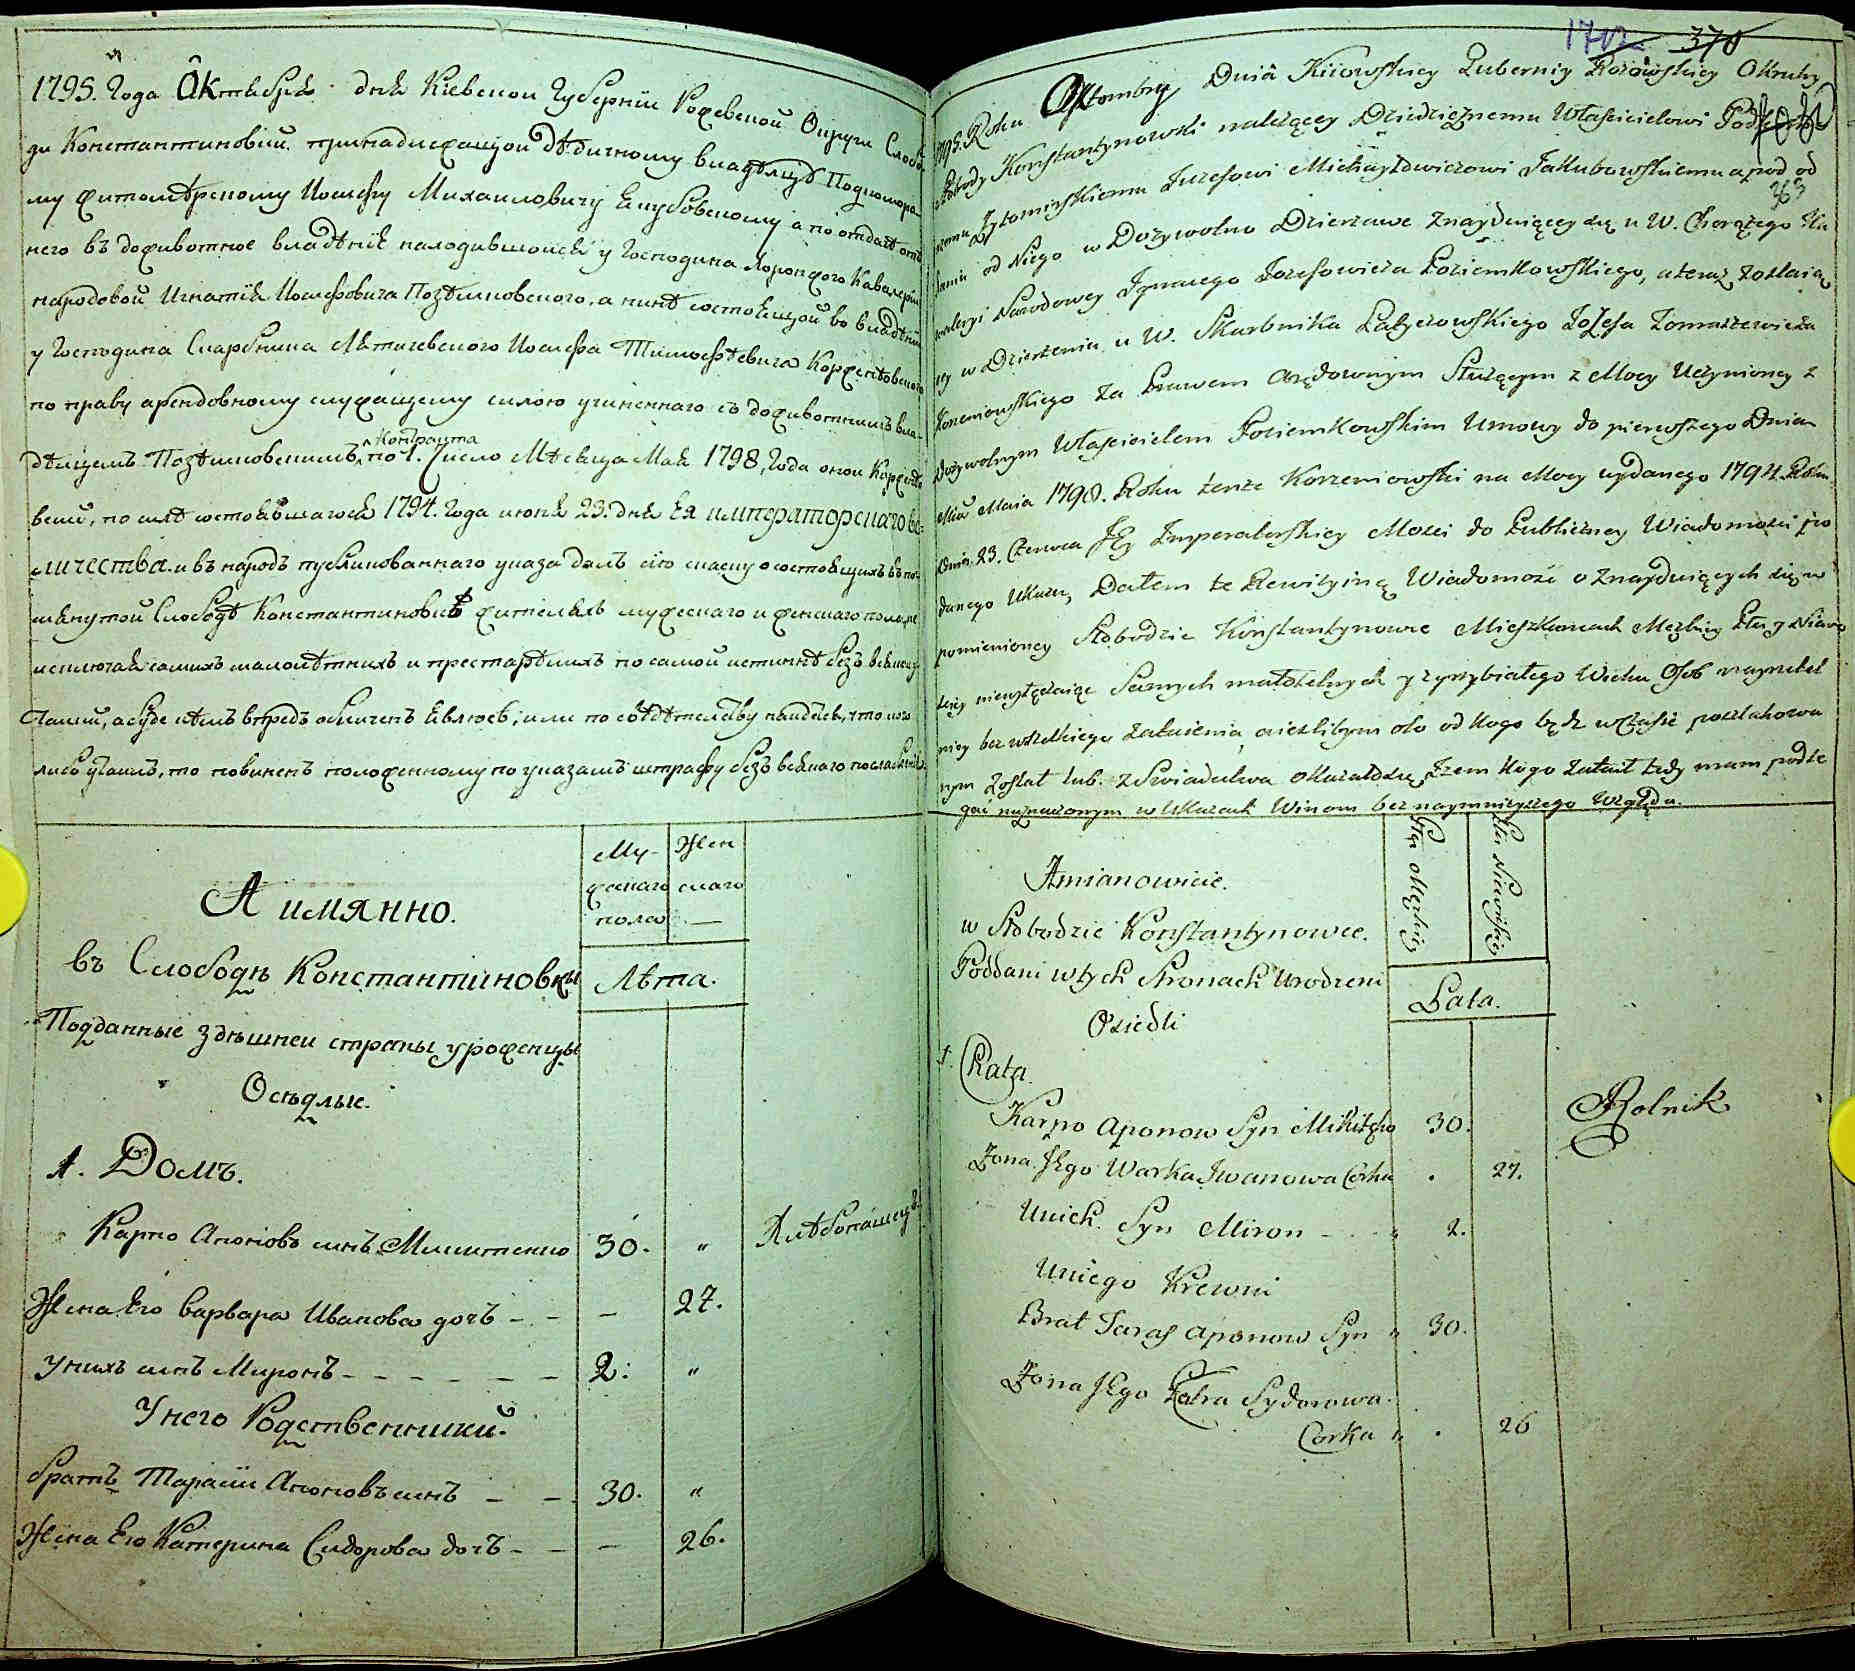 1795. Года Октября дня Киевской Губернїи Рожевской Округи Слобо
ди Константиновки принадлежащой Дѣдичному владѣлцѣ Подкомора
му Житомѣрскому Иосифу Михайловичу Якубовскому а по отдачѣ отъ
него въ доживотное владѣнїе находившойся у Господина Хоронжого Кавалерїи
народовой Игнатїя Иосифовича Позѣмковского, а нинѣ состоящой во владѣнїи
у Господина Скарбника Лѣтичевского Иосифа Тимофѣевича Корженѣовского
по праву арендовному служащему силою учиненнаго съ доживотнимъ вла-
дѣлцемъ Позѣмковскимъ Контракта по 1. Число Мѣсяца Мая 1798, Года оной Корженѣо
вский, по силѣ состоявшагося 1794. Года июня 23. дня Ея императорскаго ве-
личества и въ народъ публикованнаго указа далъ сїю сказку о состоящихъ въ по-
мянутой Слободѣ Константиновкѣ жителяхъ мужескаго и женскаго пола, не
исключая самихъ малолѣтнихъ и престарѣлихъ по самой истиннѣ безъ всякой у
таики, а буде кѣмъ впредь обличенъ явлюсь, или по свѣдѣтелству найдется, что кого
либо утаилъ, то повиненъ положенному по указамъ штрафу безъ всякаго послабленїя
А имянно.
Му-
жескаго
пола
Жен
скаго
Лѣта.
въ Слободѣ Константиновкы
Подданные здѣшней страны урожен цы
Осѣдлые.
1. Домъ.
Карпо Апоновъ синъ Микитенко 30. "
Хлѣбопашецъ
Жена Его Варвара Иванова дочъ - - — 27.
У нихъ синъ Миронъ - - - - - - 2. "
У него Родственники.
братъ Тарасїи Апоновъ синъ - - 30. "
Жена Его Катерина Сидорова дочъ - - — 26.
1702 370
363
1795. Roku Oktombry Dnia Kiiowskiey Gubernij Rożowskiey Okruhy
Słobody Konstantynowki należącey Dziedzicznemu Właścicielowi Podkomo
rzemu Zytomirskiemu Juzefowi Michayłowiczowi Jakubowskiemu a pod od
daniu od Niego w Dożywotno Dzierzawe Znayduiącey się u W. Chorążego Ka
waleryi Narodowey Ignacego Jozefowicza Poziemkowskiego, a teraz zostaią
cey w Dzierżeniu u W. Skarbnika Latyczowskiego Jozefa Tomaszewicza
Korzeniowskiego za Prawem Arędownym Służącym z Mocy Uczynioney z
Dożywotnym Właścicielem Poziemkowskim Umowy do pierwszego Dnia
Mca Maia 1798. Roku tenże Korzeniowski na Mocy wydanego 1794. Roku
Dnia 23. Czerwca JEy Imperatorskiey Mości do Publiczney Wiadomości po
danego Ukazu, Dałem te Rewizyiną Wiadomość o Znayduiących się w
pomienioney Słobodzie Konstantynowce Mieszkancach Męzkiey Płci y Niewie
ściey niewyłączaiąc Samych małoletnych y zgrzybiałego Wieku Osob nayrzetel
niey bez wszelkiego Zataienia, a ieżlibym oto od kogo bądz w Czasie poszlakowa
nym Został lub z Swiadectwa okazałosię, Iżem kogo Zataił tedy mam podle
gać naznaczonym w Ukazach Winom bez naymnieyszego Względu.
Amianowicie.
w Słobodzie Konstantynowce.
Poddani w tych Stronach Urodzeni
Osiedli
Płci Męzkiey
Płci Niewieściey
Lata.
1. Chata.
Karpo Aponow Syn Mikitęko 30.
Rolnik
Zona JEgo Warka Iwanowa Corka . 27.
Unich Syn Miron - - " 2.
Uniego Krewni
Brat Taras Aponow Syn " 30.
Zona JEgo Katra Sydorowa
Corka " . 26